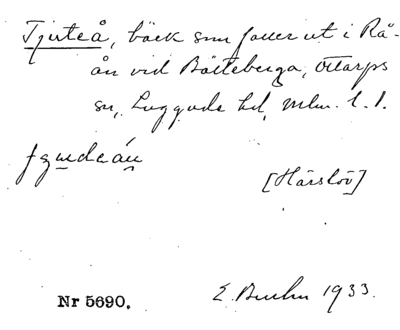 Tjuteå, bäck som faller ut i Rå-
ån vid Bälteberga, Ottarps
sn, Luggude hd, Mlm. l. 1.
[Härslöv]
E. Bruhn 1933.
Nr 5690.